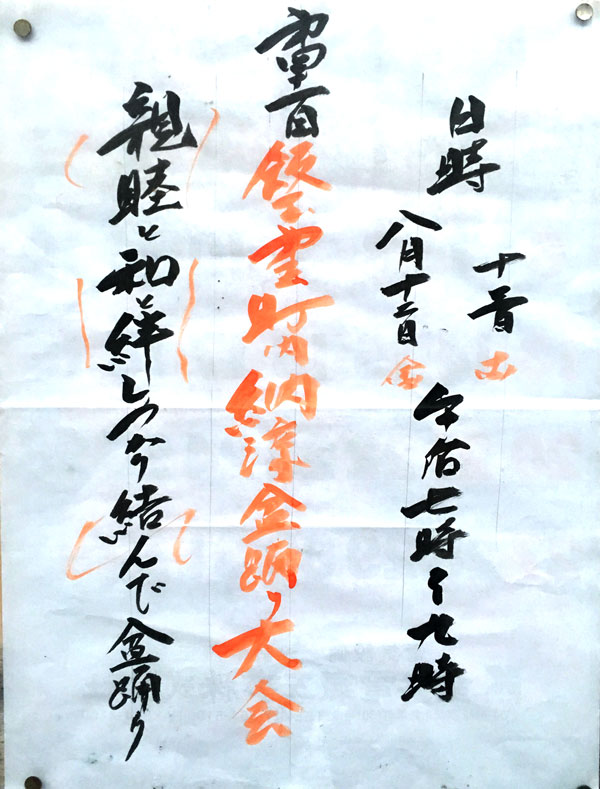 日時
十三日 土
八月十二日 金
午后七時 九時
町内納涼盆踊り大会
親睦と和と絆しっかり結んで盆踊り